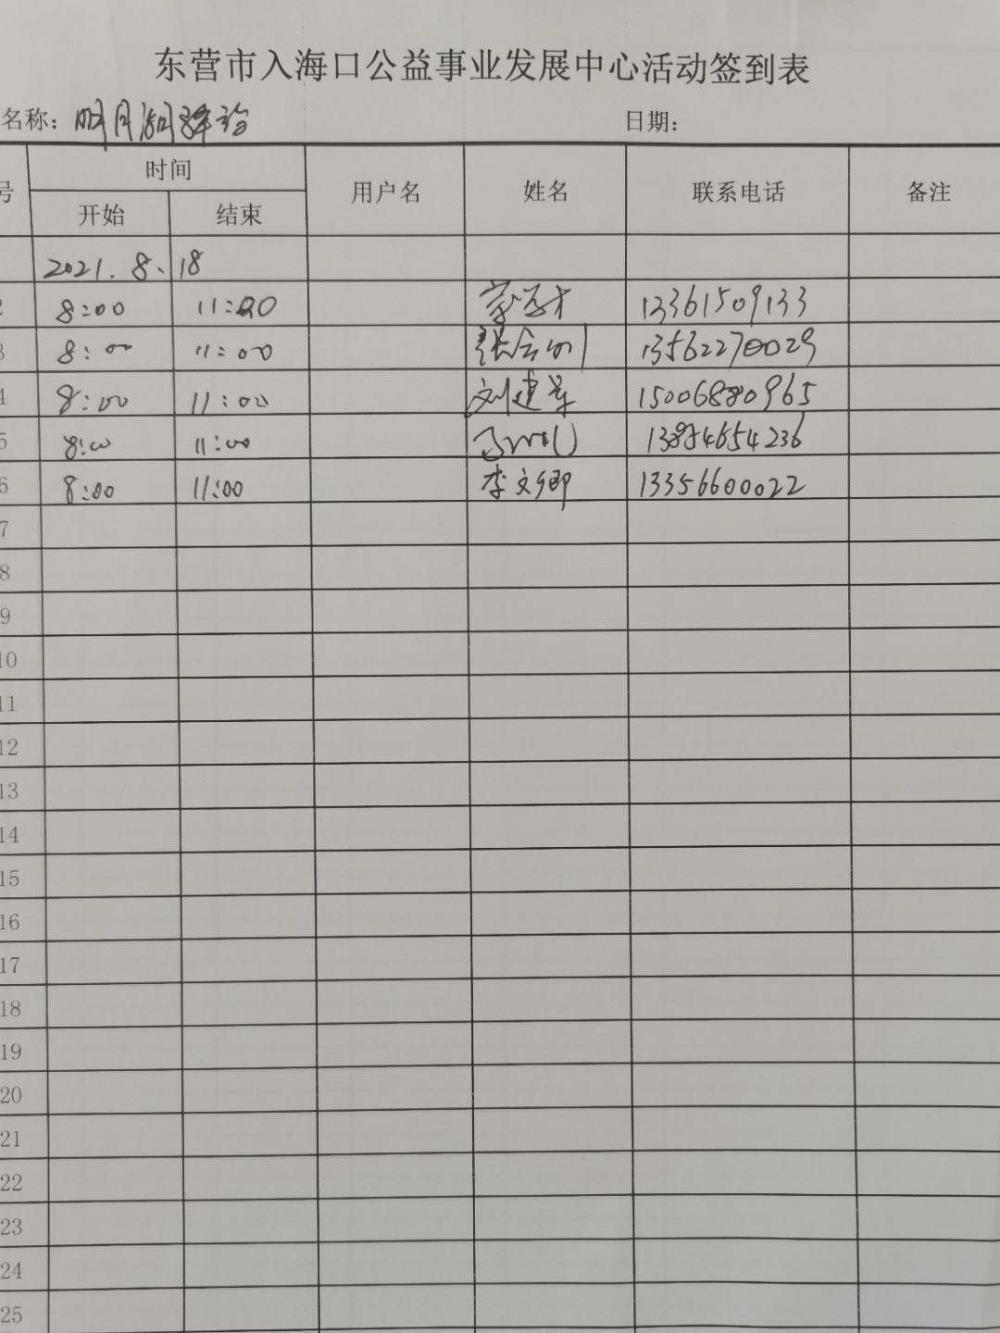 东营市入海口公益事业发展中心活动签到表
名称: 明月湖
日期:
号 时间 用户名 姓名 联系电话 备注
开始 结束
2021.8.18
2 8:00 11:00 13361509133
3 8:00 11:00 13562270029
4 8:00 11:00 刘建军 15006880965
5 8:00 11:00 13884654236
6 8:00 11:00 李文卿 13356600022
7
8
9
10
11
12
13
14
15
16
17
18
19
20
21
22
23
24
25